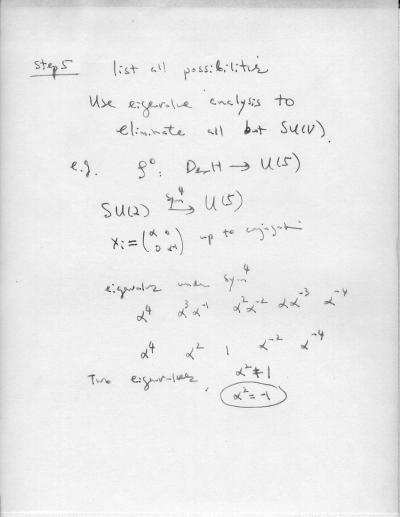 Step 5 list all possibilities
Use eigenvalue analysis to
eliminate all but SU(V)
e.g. ρ⁰: Den H → U(5)
SU(2) Sym⁴ → U(5)
x₁ = (α 0
0 α⁻¹) up to conjugation
eigenvalues under Sym⁴
α⁴ α³α⁻¹ α²α⁻² αα⁻³ α⁻⁴
α⁴ α² 1 α⁻² α⁻⁴
Two eigenvalues, α² ≠ 1
α² = -1